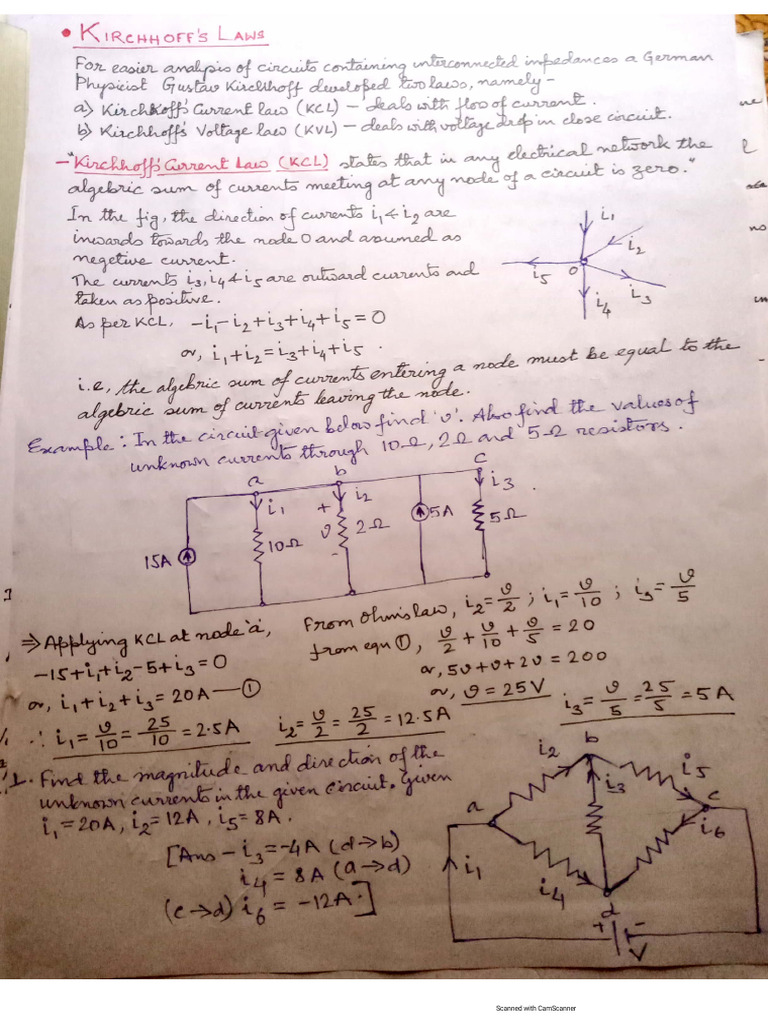 • KIRCHHOFF'S LAWS
For easier analysis of circuits containing interconnected impedances a German
Physicist Gustav Kirchhoff developed two laws, namely –
a) Kirchkoff's Current law (KCL) – deals with flow of current.
b) Kirchhoff's Voltage law (KVL) – deals with voltage drop in close circuit.
– "Kirchhoff's Current Law (KCL) states that in any electrical network the
algebric sum of currents meeting at any node of a circuit is zero."
In the fig, the direction of currents i1 & i2 are
inwards towards the node O and assumed as
negetive current.
The currents i3, i4 & i5 are outward currents and
taken as positive.
As per KCL, -i1-i2+i3+i4+i5=0
or, i1+i2=i3+i4+i5.
i1
i2
i5
o
i3
i4
i.e, the algebric sum of currents entering a node must be equal to the
algebric sum of currents leaving the node.
Example: In the circuit given below find 'v'. Also find the values of
unknown currents through 10Ω, 2Ω and 5Ω resistors.
a
b
c
i1
i2
i3
15A
10Ω
+
v
-
2Ω
5A
5Ω
⇒ Applying KCL at node 'a',
-15+i1+i2-5+i3=0
or, i1+i2+i3=20A—①
From Ohm's law, i2=v/2; i1=v/10; i3=v/5
from equn ①, v/2+v/10+v/5=20
or, 5v+v+2v=200
or, v=25V
∴ i1=v/10=25/10=2.5A
i2=v/2=25/2=12.5A
i3=v/5=25/5=5A
1. Find the magnitude and direction of the
unknown currents in the given circuit. Given
i1=20A, i2=12A, i5=8A.
[Ans – i3=-4A (d→b)
i4=8A (a→d)
(c→d) i6=-12A.]
b
i2
i5
i3
a
c
i6
i1
i4
d
+
-
V
Scanned with CamScanner